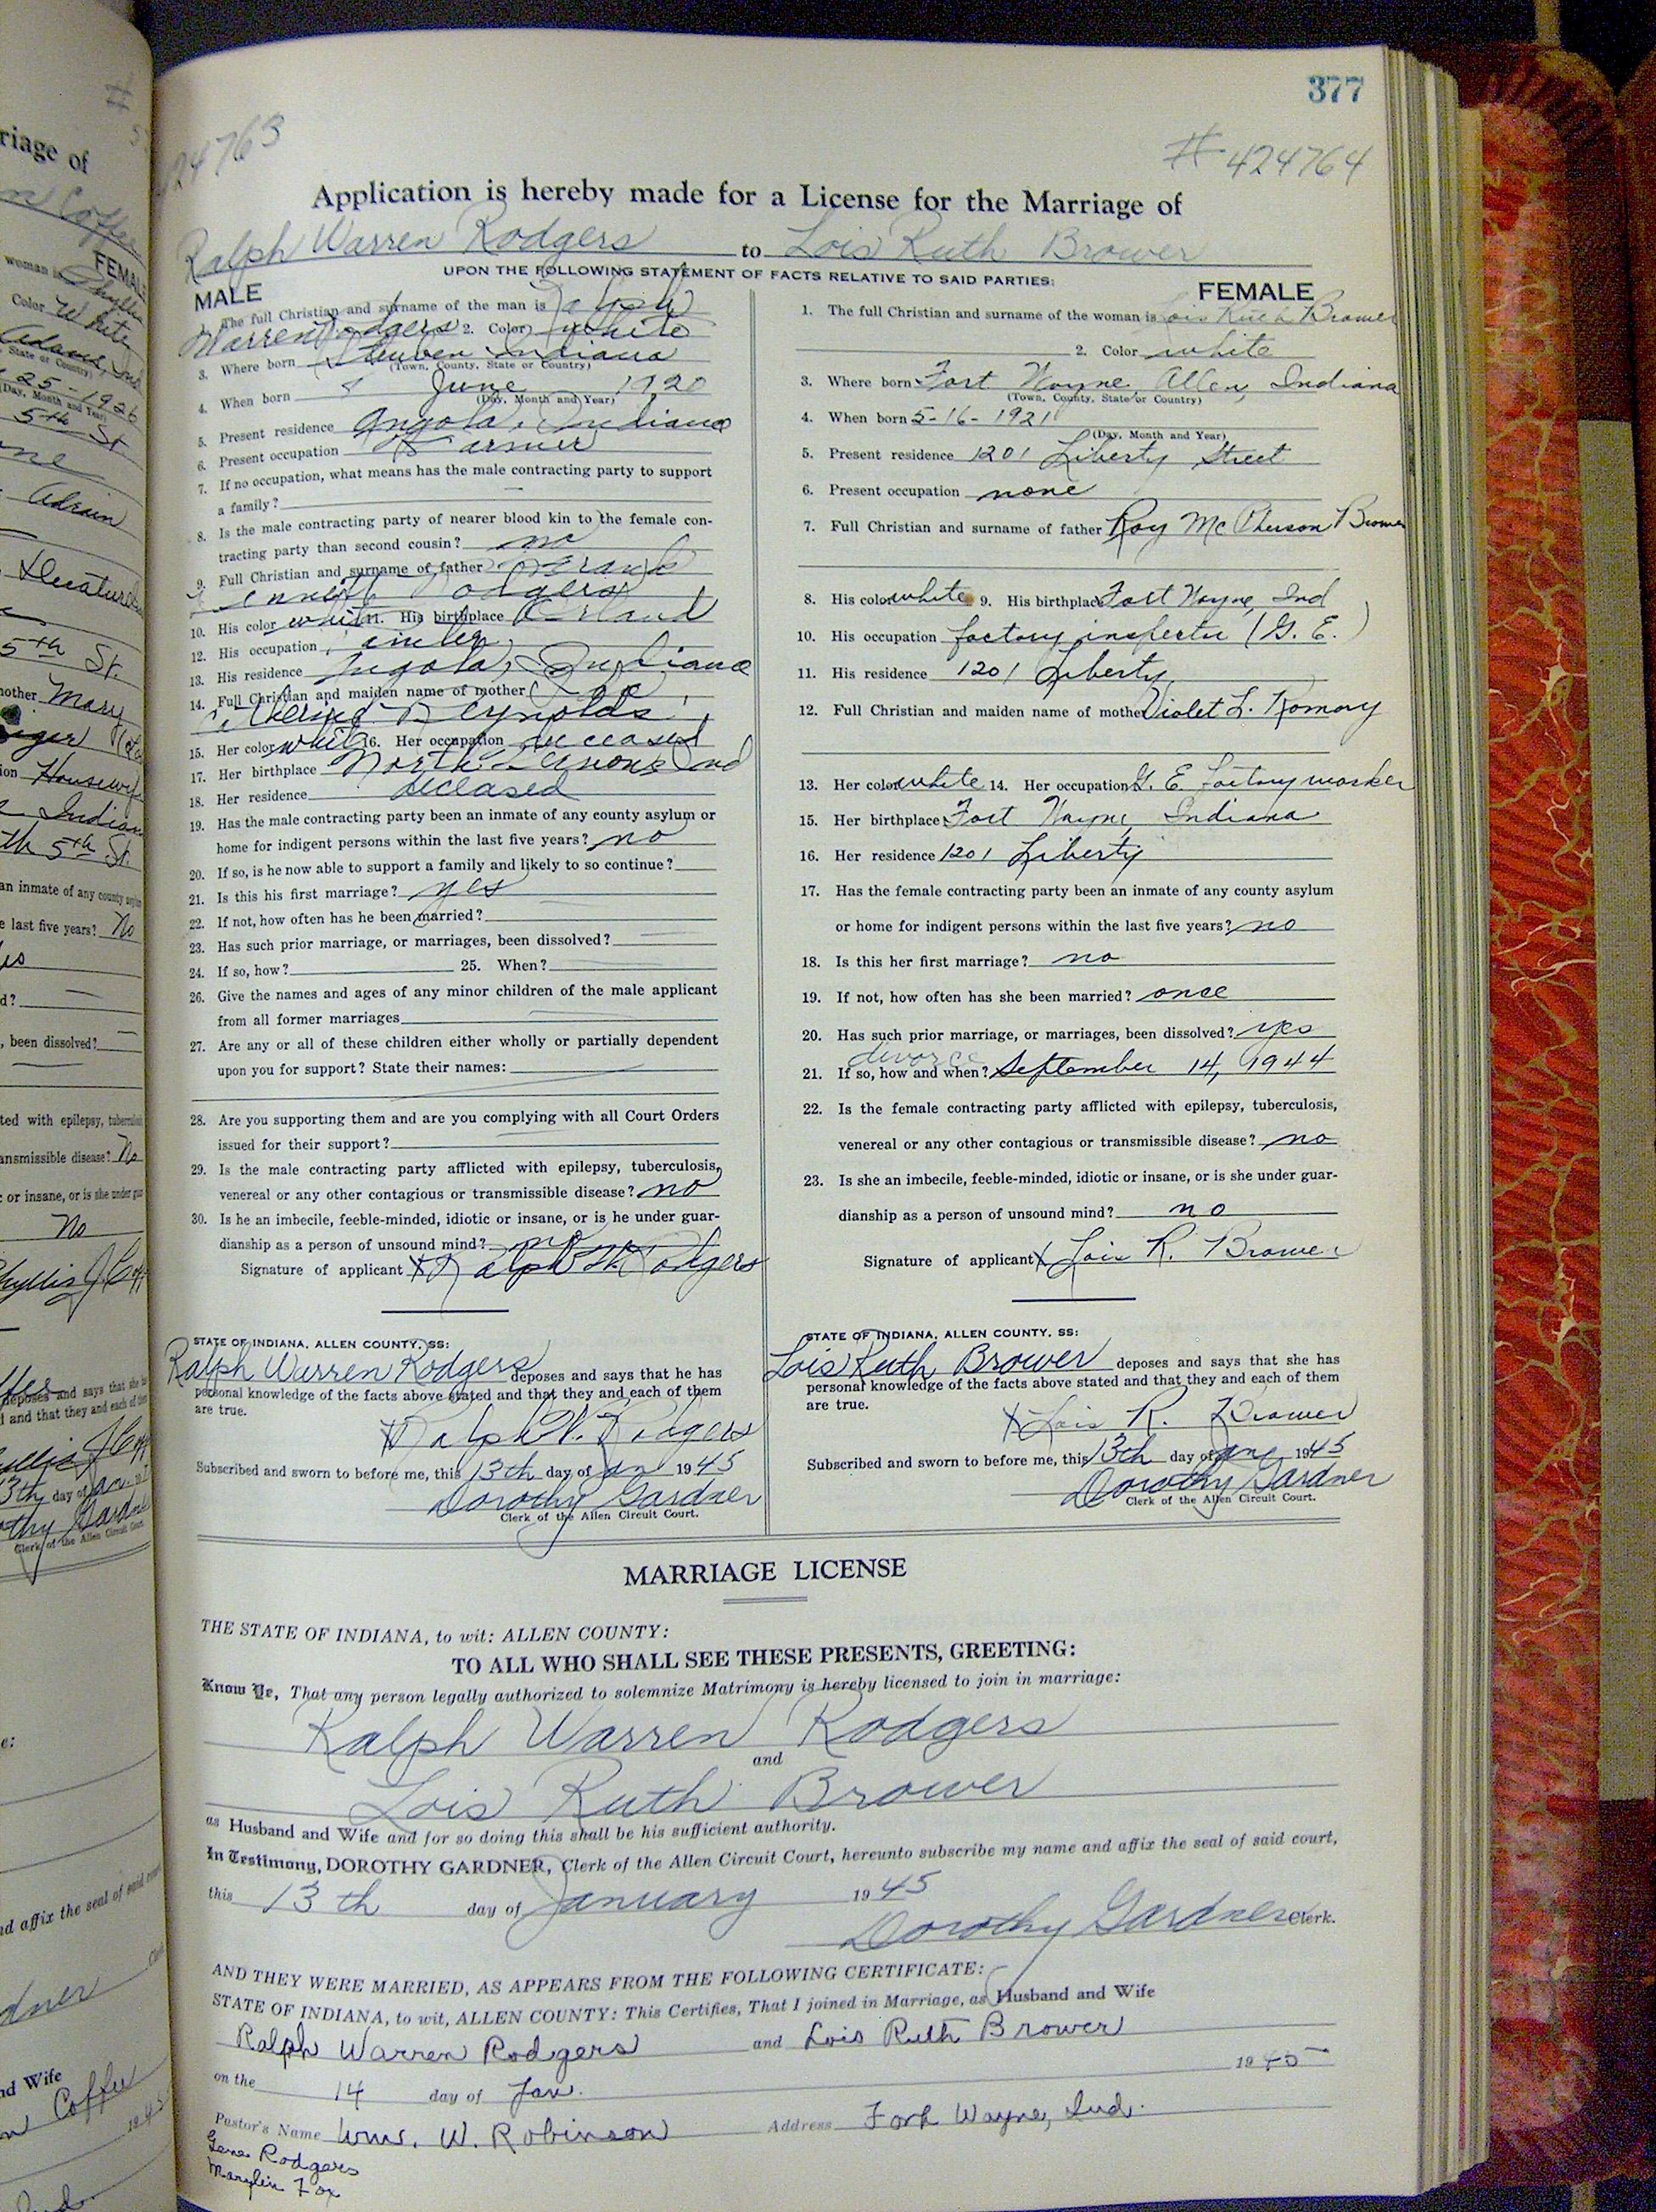 377
24763
# 424764
Application is hereby made for a License for the Marriage of
Ralph Warren Rodgers to Lois Ruth Brower
UPON THE FOLLOWING STATEMENT OF FACTS RELATIVE TO SAID PARTIES:
MALE
1. The full Christian and surname of the man is Ralph
Warren Rodgers 2. Color white
3. Where born Steuben Indiana
(Town, County, State or Country)
4. When born 8 June 1920
(Day, Month and Year)
5. Present residence Angola, Indiana
6. Present occupation Farmer
7. If no occupation, what means has the male contracting party to support
a family?
8. Is the male contracting party of nearer blood kin to the female con-
tracting party than second cousin? no
9. Full Christian and surname of father Frank
Rodgers
10. His color white 11. His birthplace Orland
12. His occupation
13. His residence Angola, Indiana
14. Full Christian and maiden name of mother
Reynolds
15. Her color white 16. Her occupation deceased
17. Her birthplace North Ind
18. Her residence deceased
19. Has the male contracting party been an inmate of any county asylum or
home for indigent persons within the last five years? no
20. If so, is he now able to support a family and likely to so continue?
21. Is this his first marriage? yes
22. If not, how often has he been married?
23. Has such prior marriage, or marriages, been dissolved?
24. If so, how? 25. When?
26. Give the names and ages of any minor children of the male applicant
from all former marriages
27. Are any or all of these children either wholly or partially dependent
upon you for support? State their names:
28. Are you supporting them and are you complying with all Court Orders
issued for their support?
29. Is the male contracting party afflicted with epilepsy, tuberculosis,
venereal or any other contagious or transmissible disease? no
30. Is he an imbecile, feeble-minded, idiotic or insane, or is he under guar-
dianship as a person of unsound mind? no
Signature of applicant X Ralph W Rodgers
STATE OF INDIANA, ALLEN COUNTY, SS:
Ralph Warren Rodgers deposes and says that he has
personal knowledge of the facts above stated and that they and each of them
are true.
X Ralph W. Rodgers
Subscribed and sworn to before me, this 13th day of Jan 1945
Dorothy Gardner
Clerk of the Allen Circuit Court.
FEMALE
1. The full Christian and surname of the woman is Lois Ruth Brower
2. Color white
3. Where born Fort Wayne, Allen, Indiana
(Town, County, State or Country)
4. When born 5-16-1921
(Day, Month and Year)
5. Present residence 1201 Liberty Street
6. Present occupation none
7. Full Christian and surname of father Roy McPherson Brower
8. His color white 9. His birthplace Fort Wayne, Ind
10. His occupation factory inspector (G. E.)
11. His residence 1201 Liberty
12. Full Christian and maiden name of mother Violet L. Romary
13. Her color white 14. Her occupation G. E. factory worker
15. Her birthplace Fort Wayne, Indiana
16. Her residence 1201 Liberty
17. Has the female contracting party been an inmate of any county asylum
or home for indigent persons within the last five years? no
18. Is this her first marriage? no
19. If not, how often has she been married? once
20. Has such prior marriage, or marriages, been dissolved? yes
divorce
21. If so, how and when? September 14, 1944
22. Is the female contracting party afflicted with epilepsy, tuberculosis,
venereal or any other contagious or transmissible disease? no
23. Is she an imbecile, feeble-minded, idiotic or insane, or is she under guar-
dianship as a person of unsound mind? no
Signature of applicant X Lois R. Brower
STATE OF INDIANA, ALLEN COUNTY, SS:
Lois Ruth Brower deposes and says that she has
personal knowledge of the facts above stated and that they and each of them
are true.
X Lois R. Brower
Subscribed and sworn to before me, this 13th day of Jan 1945
Dorothy Gardner
Clerk of the Allen Circuit Court.
MARRIAGE LICENSE
THE STATE OF INDIANA, to wit: ALLEN COUNTY:
TO ALL WHO SHALL SEE THESE PRESENTS, GREETING:
Know Ye, That any person legally authorized to solemnize Matrimony is hereby licensed to join in marriage:
Ralph Warren Rodgers
and
Lois Ruth Brower
as Husband and Wife and for so doing this shall be his sufficient authority.
In Testimony, DOROTHY GARDNER, Clerk of the Allen Circuit Court, hereunto subscribe my name and affix the seal of said court,
this 13th day of January 1945
Dorothy Gardner Clerk.
AND THEY WERE MARRIED, AS APPEARS FROM THE FOLLOWING CERTIFICATE:
STATE OF INDIANA, to wit, ALLEN COUNTY: This Certifies, That I joined in Marriage, as Husband and Wife
Ralph Warren Rodgers and Lois Ruth Brower
on the 14 day of Jan. 1945
Pastor's Name Wm. W. Robinson Address Fort Wayne, Ind.
Gene Rodgers
Marylin Fox